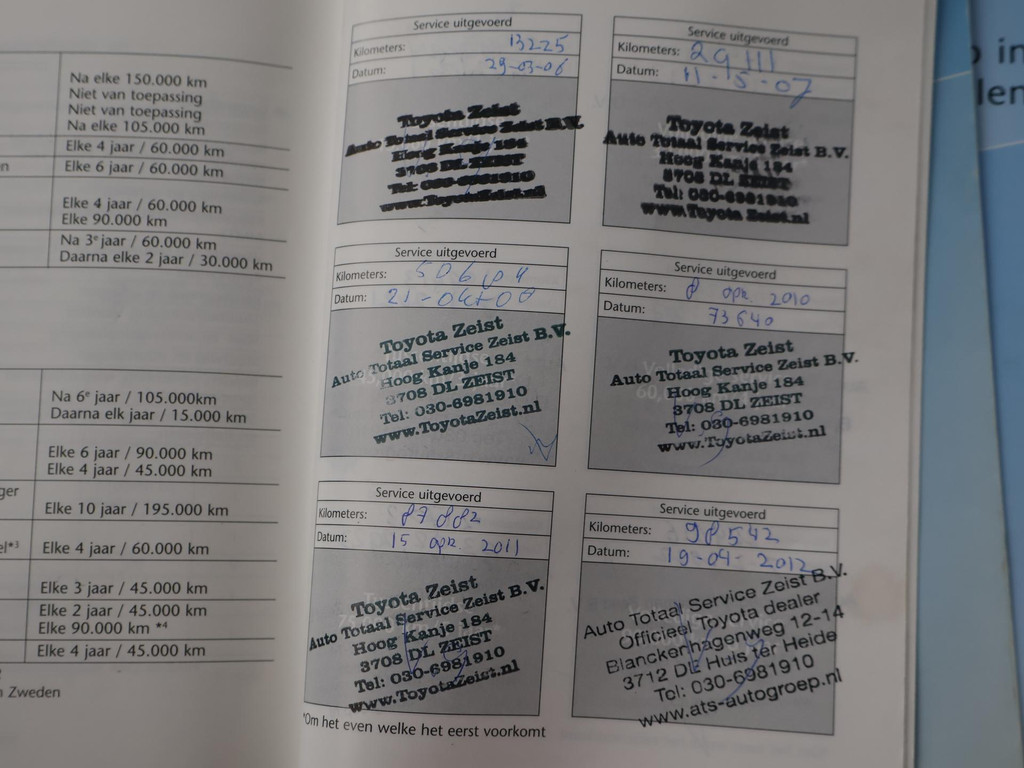 Na elke 150.000 km
Niet van toepassing
Niet van toepassing
Na elke 105.000 km
Elke 4 jaar / 60.000 km
n Elke 6 jaar / 60.000 km
Elke 4 jaar / 60.000 km
Elke 90.000 km
Na 3e jaar / 60.000 km
Daarna elke 2 jaar / 30.000 km
Na 6e jaar / 105.000km
Daarna elk jaar / 15.000 km
Elke 6 jaar / 90.000 km
Elke 4 jaar / 45.000 km
ger
Elke 10 jaar / 195.000 km
el*3 Elke 4 jaar / 60.000 km
Elke 3 jaar / 45.000 km
Elke 2 jaar / 45.000 km
Elke 90.000 km *4
Elke 4 jaar / 45.000 km
Zweden
Service uitgevoerd
Kilometers: 13225
Datum: 29-03-06
Toyota Zeist
Auto Totaal Service Zeist B.V.
Hoog Kanje 184
3708 DL ZEIST
Tel: 030-6981910
www.ToyotaZeist.nl
Service uitgevoerd
Kilometers: 29111
Datum: 11-5-07
Toyota Zeist
Auto Totaal Service Zeist B.V.
Hoog Kanje 184
3708 DL ZEIST
Tel: 030-6981910
www.ToyotaZeist.nl
Service uitgevoerd
Kilometers:
Datum: 21-okt-08
Toyota Zeist
Auto Totaal Service Zeist B.V.
Hoog Kanje 184
3708 DL ZEIST
Tel: 030-6981910
www.ToyotaZeist.nl
Service uitgevoerd
Kilometers: 8 apr. 2010
Datum: 73640
Toyota Zeist
Auto Totaal Service Zeist B.V.
Hoog Kanje 184
3708 DL ZEIST
Tel: 030-6981910
www.ToyotaZeist.nl
Service uitgevoerd
Kilometers: 87882
Datum: 15 apr. 2011
Toyota Zeist
Auto Totaal Service Zeist B.V.
Hoog Kanje 184
3708 DL ZEIST
Tel: 030-6981910
www.ToyotaZeist.nl
Service uitgevoerd
Kilometers: 98542
Datum: 19-04-2012
Auto Totaal Service Zeist B.V.
Officieel Toyota dealer
Blanckenhagenweg 12-14
3712 DL Huis ter Heide
Tel: 030-6981910
www.ats-autogroep.nl
*Om het even welke het eerst voorkomt
in
len